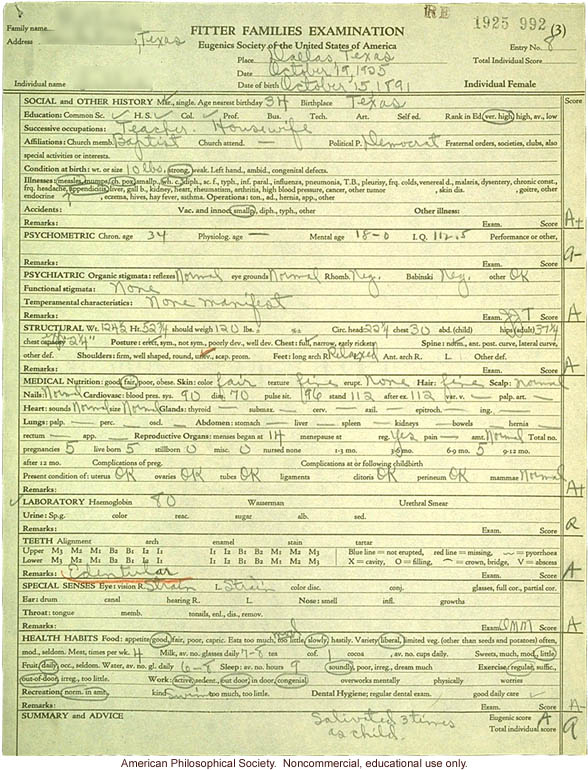 RE 1925 992 (3)
Family name
FITTER FAMILIES EXAMINATION
Address , Texas
Eugenics Society of the United States of America
Entry No. 8
Place Dallas, Texas
Total Individual Score
Date October 19, 1925
Individual name Date of birth October 15, 1891 Individual Female
SOCIAL AND OTHER HISTORY Mar., single. Age nearest birthday 34 Birthplace Texas
Education: Common Sc. H. S. Col. Prof. Bus. Tech. Art. Self ed. Rank in Ed. ver. high, high, av., low
Successive occupations: Teacher. Housewife
Affiliations: Church memb. Baptist Church attend. — Political P. Democrat Fraternal orders, societies, clubs, also
special activities or interests.
Condition at birth: wt. or size 10 lbs. strong, weak. Left hand, ambid., congenital defects.
Illnesses: measles, mumps, ch. pox, smallp., wh. c., diph., sc. f., typh., inf. paral., influenza, pneumonia, T.B., pleurisy, frq. colds, venereal d., malaria, dysentery, chronic const.,
frq. headache, appendicitis, liver, gall b., kidney, heart, rheumatism, arthritis, high blood pressure, cancer, other tumor , skin dis. , goitre, other
endocrine , eczema, hives, hay fever, asthma. Operations: ton., ad., hernia, app., other
Accidents: Vac. and innoc. smallp., diph., typh., other Other illness: Score
Remarks: Exam. A+
PSYCHOMETRIC Chron. age 34 Physiolog. age — Mental age 18-0 I.Q. 112.5 Performance or other,
A-
Remarks: Exam. Score
PSYCHIATRIC Organic stigmata: reflexes Normal eye grounds Normal Rhomb. Neg. Babinski Neg. other OK
Functional stigmata: None
Temperamental characteristics: None manifest Score
Remarks: Exam. A
STRUCTURAL Wt. 124½ Ht. 52¾ should weigh 120 lbs. ± %± Circ. head 22¼ chest 30 abd. (child) hips (adult) 37¼
chest capacity 2¼" Posture: erect, sym., not sym., poorly dev., well dev. Chest: full, narrow, early rickets Spine: norm., ant. post. curve, lateral curve,
other def. Shoulders: firm, well shaped, round, unev., scap. prom. Feet: long arch R. Relaxed Ant. arch R. L. Other def. Score
Remarks: Exam. A
MEDICAL Nutrition: good, fair, poor, obese. Skin: color fair texture fine erupt. None Hair: fine Scalp: Normal
Nails: Normal Cardiovasc: blood pres. sys. 90 dias. 70 pulse sit. 96 stand 112 after ex. 112 var. v. — palp. art. —
Heart: sounds Normal size Normal Glands: thyroid — submax. — cerv. — axil. — epitroch. — ing. —
Lungs: palp. — perc. — oscl. — Abdomen: stomach — liver — spleen — kidneys — bowels — hernia —
rectum — app. — Reproductive Organs: menses began at 14 menopause at reg. Yes pain — amt. Normal Total no.
pregnancies 5 live born 5 stillborn 0 misc. 0 nursed none 1-3 mo. 3-6 mo. 6-9 mo. 5 9-12 mo.
after 12 mo. Complications of preg. Complications at or following childbirth
Present condition of: uterus OK ovaries OK tubes OK ligaments clitoris OK perineum OK mammae Normal Score
Remarks: A+
LABORATORY Haemoglobin 80 Wasserman Urethral Smear
Urine: Sp.g. color reac. sugar alb. sed.
Remarks: Exam. Score
TEETH Alignment arch enamel stain tartar
Upper M3 M2 M1 B2 B1 C I2 I1 I1 I2 C B1 B2 M1 M2 M3 Blue line = not erupted, red line = missing, = pyorrhoea
Lower M3 M2 M1 B2 B1 C I2 I1 I1 I2 C B1 B2 M1 M2 M3 X = cavity, O = filling, = crown, bridge, V = abscess
Remarks: Exam. Score A
SPECIAL SENSES Eye: vision R. Strain L. Strain color disc. conj. glasses, full cor., partial cor.
Ear: drum canal hearing R. L. Nose: smell infl. growths
Throat: tongue memb. tonsils, enl., dis., remov.
Remarks: Exam. DMM Score A
HEALTH HABITS Food: appetite good, fair, poor, capric. Eats too much, too little, slowly, hastily. Variety: liberal, limited veg. (other than seeds and potatoes) often,
mod., seldom. Meat, times per wk. 4 Milk, av. no. glasses daily 7-8 tea cof. 1 cocoa , av. no. cups daily. Sweets, much, mod., little
Fruit, daily, occ., seldom. Water, av. no. gl. daily 6-8 Sleep: av. no. hours 9 soundly, poor, irreg., dream much Exercise: regular, suffic.,
out-of-door, irreg., too little. Work: active, sedent., out door, in door, congenial overworks mentally physically worries
Recreation: norm. in amt., kind Swim too much, too little. Dental Hygiene; regular dental exam. good daily care Score
Remarks: Exam. A-
SUMMARY and ADVICE Salivated 3 times Eugenic score A
as child. Total individual score A
American Philosophical Society. Noncommercial, educational use only.